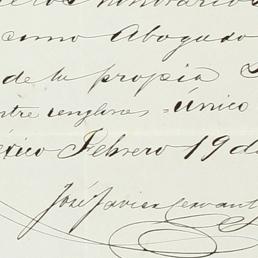 honorarios
como Abogado
de la propia
entre renglones = Único
México Febrero 19 d
José Javier Cervant